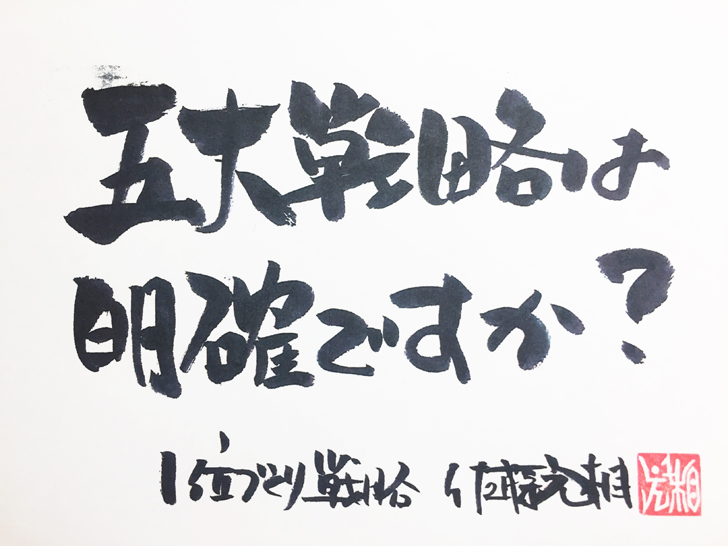 五大戦略は
明確ですか?
1位づくり戦略 佐藤元相
元相